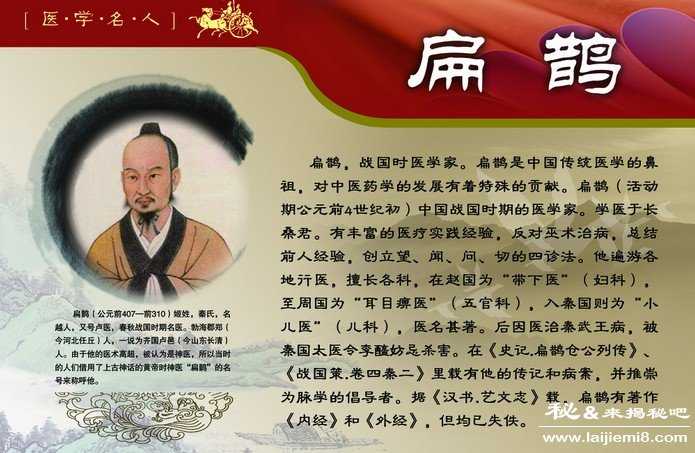 [ 医·学·名·人 ]
扁鹊
扁鹊，战国时医学家。扁鹊是中国传统医学的鼻
祖，对中医药学的发展有着特殊的贡献。扁鹊（活动
期公元前4世纪初）中国战国时期的医学家。学医于长
桑君。有丰富的医疗实践经验，反对巫术治病，总结
前人经验，创立望、闻、问、切的四诊法。他遍游各
地行医，擅长各科，在赵国为“带下医”（妇科），
至周国为“耳目痹医”（五官科），入秦国则为“小
儿医”（儿科），医名甚著。后因医治秦武王病，被
秦国太医令李醯妨忌杀害。在《史记.扁鹊仓公列传》、
《战国策.卷四秦二》里载有他的传记和病案，并推崇
为脉学的倡导者。据《汉书.艺文志》载，扁鹊有著作
《内经》和《外经》，但均已失佚。
扁鹊（公元前407—前310）姬姓，秦氏，名
越人，又号卢医，春秋战国时期名医。勃海郡郑（
今河北任丘）人，一说为齐国卢邑（今山东长清）
人。由于他的医术高超，被认为是神医，所以当时
的人们借用了上古神话的黄帝时神医“扁鹊”的名
号来称呼他。
秘&来揭秘吧
www.laijiemi8.com